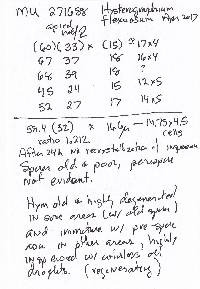 MU 271658 Hysterographium
flexuosum Mar 2017
apical
half
(60)(33) x (15) 17x4
67 37 18 16x4
68 39 18 ?
45 24 15 12x5
52 27 17 14x5
58.4 (32) x 16.6µ 14.75x4.5
ratio 1.212 cells
After 24 h no recrystallization of
Spores old & poor, perispore
not evident.
Hym old & highly degenerated
in some areas (w/ old spores)
and immature w/ pre spore
asci in other areas, highly
w/ oil
droplets. (regenerating)